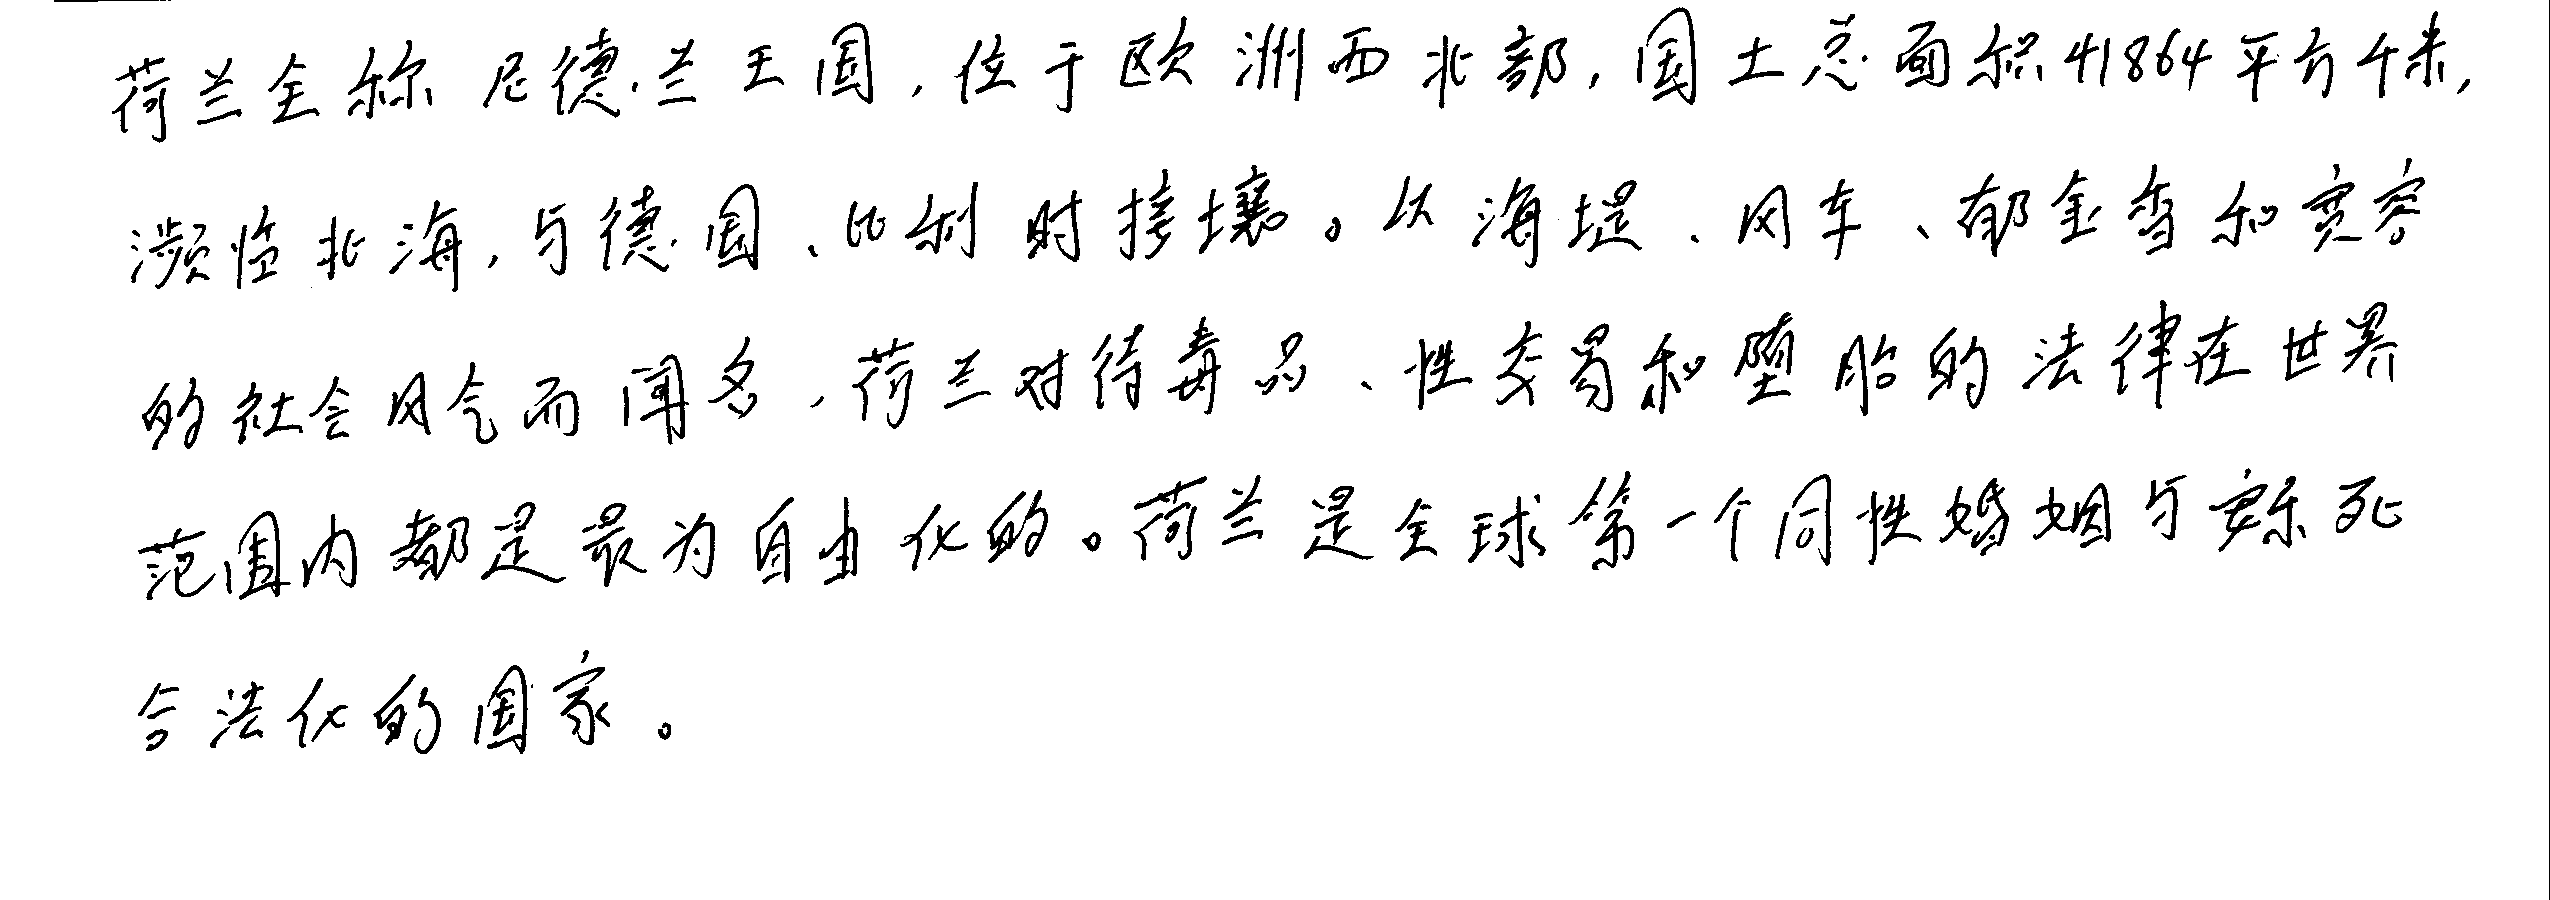 荷兰全称尼德兰王国，位于欧洲西北部，国土总面积41864平方千米，
濒临北海，与德国、比利时接壤。以海堤、风车、郁金香和宽容
的社会风气而闻名，荷兰对待毒品、性交易和堕胎的法律在世界
范围内都是最为自由化的。荷兰是全球第一个同性婚姻与安乐死
合法化的国家。